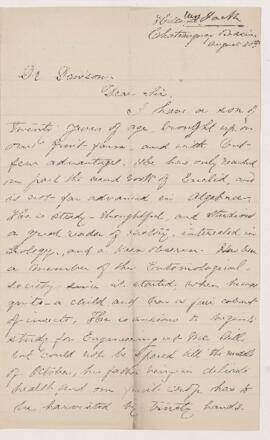 Mrs Jack
Chateauguay Basin
August 20th
Dr Dawson.
Dear Sir.
I have a son of
twenty years of age brought up on
our fruit farm, and with but
few advantages. He has only reached
in part the second book of Euclid, and
is not far advanced in Algebra.
He is steady - thoughtful, and studious
a good reader of history, interested in
Zoology, and a keen observer. Has been
a member of the Entomological
society since it started, when he was
quite a child, and has a fair cabinet
of insects, He is anxious to begin
study for Engineering at McGill,
but could not be spared till the middle
of October, his father being in delicate
health, and our fruit crop has to
be harvested by thirty hands.